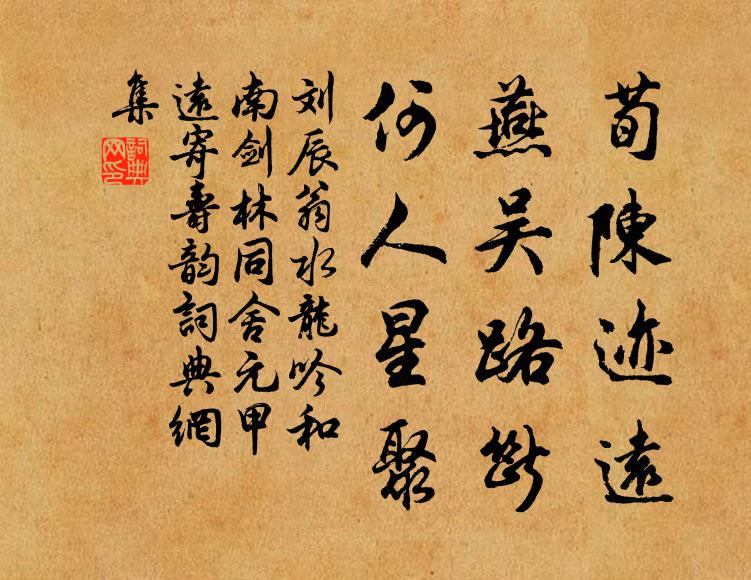 荀陳迹遠
燕吴路斷
何人星聚
刘辰翁水龍吟和
南剑林同舍元甲
遠寄壽韵詞典網
集
詞典
网印